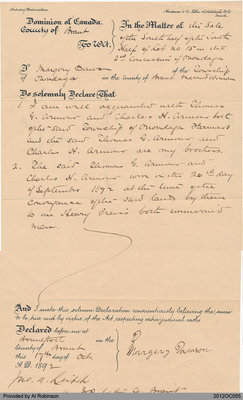 Statutory Declaration.
Dominion of Canada.
County of Brant
To Wit:
In the Matter of the Sale
of the South half of the South
Half of Lot No. 15 in the
2nd Concession of Onondaga
I Margery Dawson of the Township
of Onondaga in the County of Brant Married Woman
Do solemnly Declare That
1. I am well acquainted with Thomas
G. Armour and Charles H. Armour both
of the said Township of Onondaga Farmers
and the said Thomas G. Armour and
Charles H. Armour are my brothers.
2. The said Thomas G. Armour and
Charles H. Armour were on the 20th day
of September 1892 at the time of the
conveyance of the said lands by them
to one Henry both unmarried
men.
And I make this solemn Declaration conscientiously believing the same
to be true and by virtue of the Act respecting extra-judicial oaths
Declared before me at
Brantford in the
County of Brant
this 17th day of Oct
A.D. 1892
Margery Dawson
Provided by Al Robinson
2012DC055